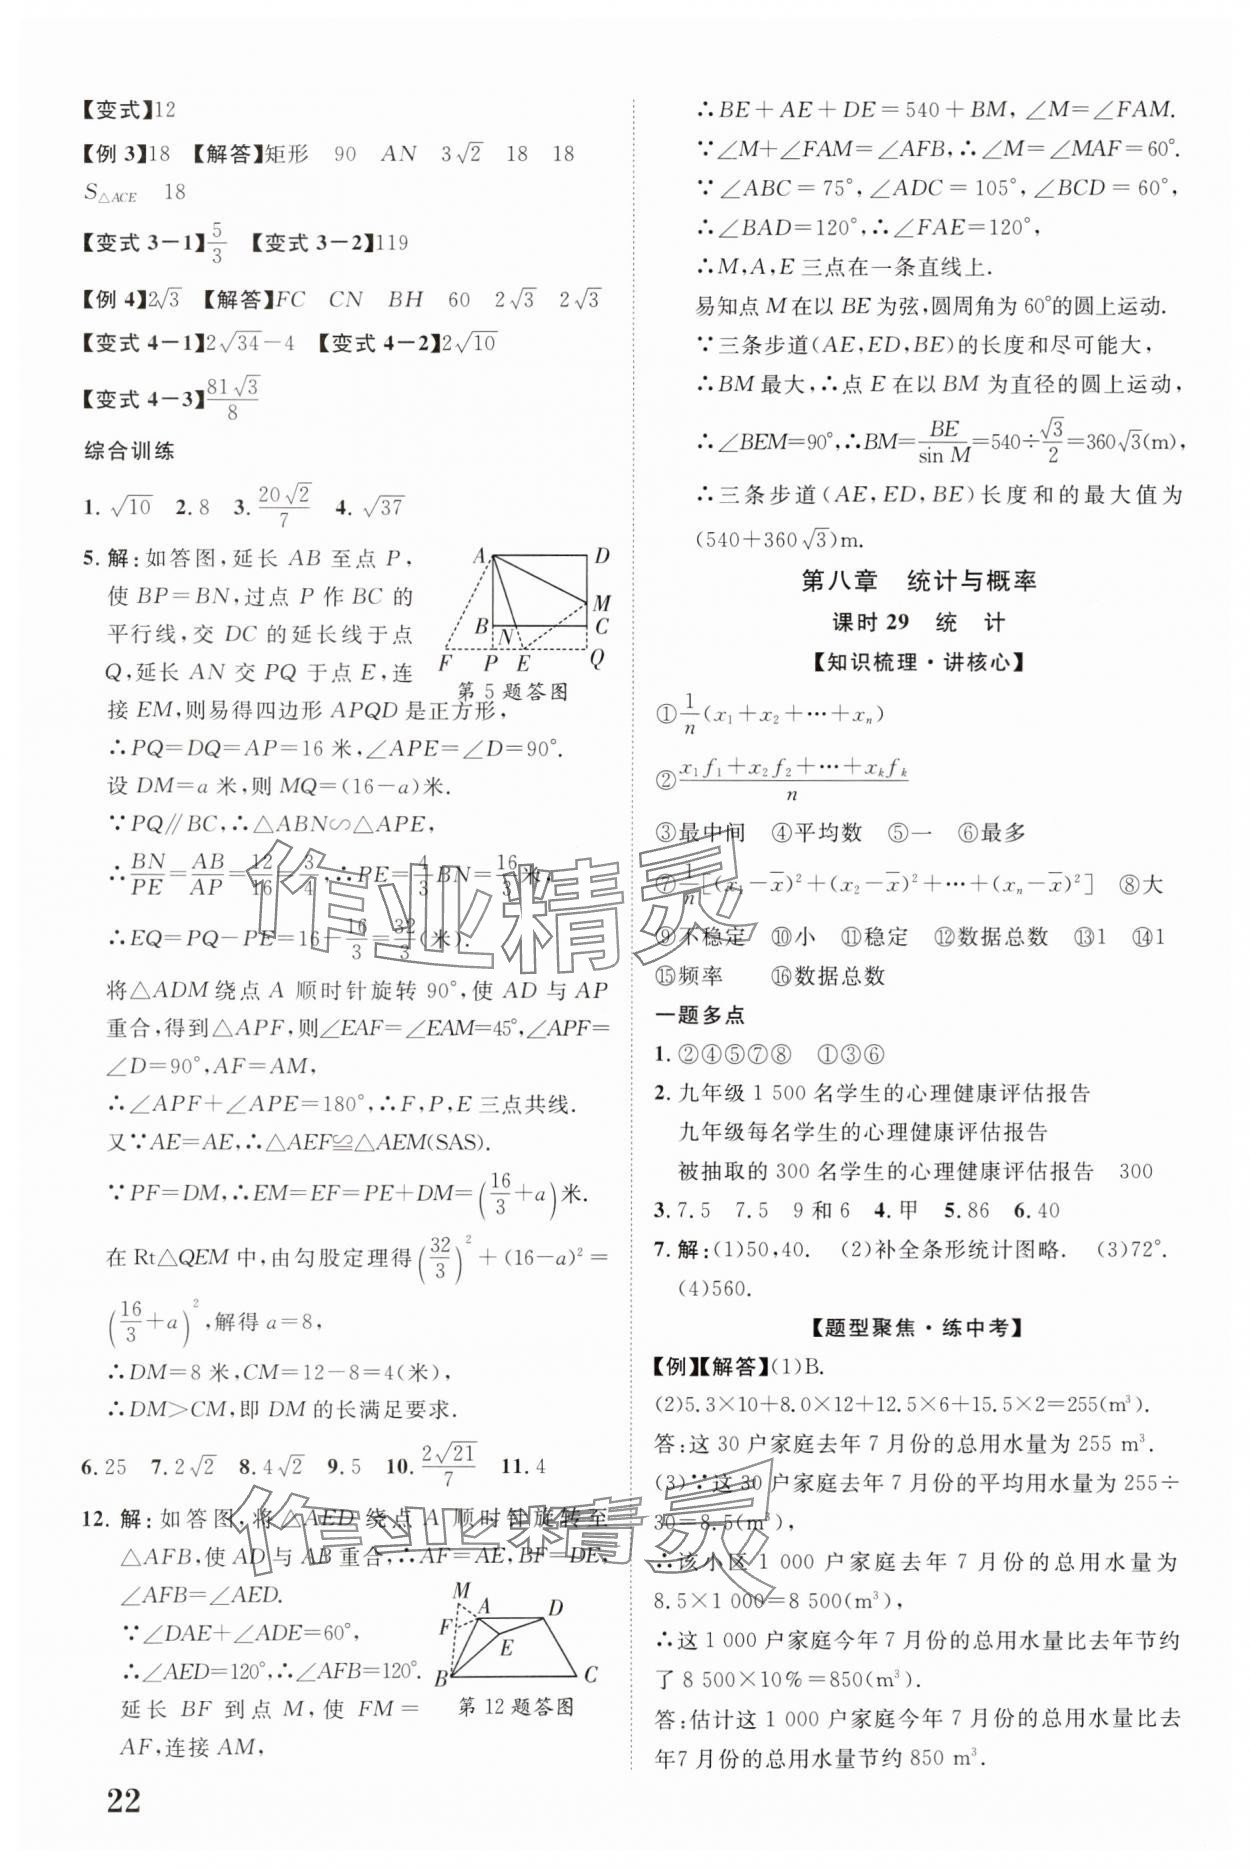 【变式】12
【例 3】18 【解答】矩形 90 AN 3√2 18 18
S△ACE 18
【变式 3-1】5/3 【变式 3-2】119
【例 4】2√3 【解答】FC CN BH 60 2√3 2√3
【变式 4-1】2√34-4 【变式 4-2】2√10
【变式 4-3】81√3/8
综合训练
1. √10 2. 8 3. 20√2/7 4. √37
5. 解:如答图,延长 AB 至点 P,
使 BP=BN,过点 P 作 BC 的
平行线,交 DC 的延长线于点
Q,延长 AN 交 PQ 于点 E,连
接 EM,则易得四边形 APQD 是正方形,
A D
M
B N C
F P E Q
第 5 题答图
∴PQ=DQ=AP=16 米,∠APE=∠D=90°.
设 DM=a 米,则 MQ=(16-a)米.
∵PQ∥BC,∴△ABN∽△APE,
∴BN/PE=AB/AP=12/16=3/4,∴PE=4/3BN=16/3米,
∴EQ=PQ-PE=16-16/3=32/3(米).
将△ADM 绕点 A 顺时针旋转 90°,使 AD 与 AP
重合,得到△APF,则∠EAF=∠EAM=45°,∠APF=
∠D=90°,AF=AM,
∴∠APF+∠APE=180°,∴F,P,E 三点共线.
又∵AE=AE,∴△AEF≌△AEM(SAS).
∵PF=DM,∴EM=EF=PE+DM=(16/3+a)米.
在 Rt△QEM 中,由勾股定理得(32/3)²+(16-a)²=
(16/3+a)²,解得 a=8,
∴DM=8 米,CM=12-8=4(米),
∴DM>CM,即 DM 的长满足要求.
6. 25 7. 2√2 8. 4√2 9. 5 10. 2√21/7 11. 4
12. 解:如答图,将△AED 绕点 A 顺时针旋转至
△AFB,使 AD 与 AB 重合,∴AF=AE,BF=DE,
∠AFB=∠AED.
∵∠DAE+∠ADE=60°,
∴∠AED=120°,∴∠AFB=120°.
延长 BF 到点 M,使 FM=
AF,连接 AM,
M
A D
F
E
B C
第 12 题答图
22
∴BE+AE+DE=540+BM,∠M=∠FAM.
∵∠M+∠FAM=∠AFB,∴∠M=∠MAF=60°.
∵∠ABC=75°,∠ADC=105°,∠BCD=60°,
∴∠BAD=120°,∴∠FAE=120°,
∴M,A,E 三点在一条直线上.
易知点 M 在以 BE 为弦,圆周角为 60°的圆上运动.
∵三条步道(AE,ED,BE)的长度和尽可能大,
∴BM 最大,∴点 E 在以 BM 为直径的圆上运动,
∴∠BEM=90°,∴BM=BE/sin M=540÷√3/2=360√3(m),
∴三条步道(AE,ED,BE)长度和的最大值为
(540+360√3)m.
第八章 统计与概率
课时 29 统 计
【知识梳理·讲核心】
①1/n(x₁+x₂+⋯+xₙ)
②(x₁f₁+x₂f₂+⋯+xₖfₖ)/n
③最中间 ④平均数 ⑤一 ⑥最多
⑦1/n[(x₁-x̄)²+(x₂-x̄)²+⋯+(xₙ-x̄)²] ⑧大
⑨不稳定 ⑩小 ⑪稳定 ⑫数据总数 ⑬1 ⑭1
⑮频率 ⑯数据总数
一题多点
1. ②④⑤⑦⑧ ①③⑥
2. 九年级 1 500 名学生的心理健康评估报告
九年级每名学生的心理健康评估报告
被抽取的 300 名学生的心理健康评估报告 300
3. 7.5 7.5 9 和 6 4. 甲 5. 86 6. 40
7. 解:(1)50,40. (2)补全条形统计图略. (3)72°.
(4)560.
【题型聚焦·练中考】
【例】【解答】(1)B.
(2)5.3×10+8.0×12+12.5×6+15.5×2=255(m³).
答:这 30 户家庭去年 7 月份的总用水量为 255 m³.
(3)∵这 30 户家庭去年 7 月份的平均用水量为 255÷
30=8.5(m³),
∴该小区 1 000 户家庭去年 7 月份的总用水量为
8.5×1 000=8 500(m³),
∴这 1 000 户家庭今年 7 月份的总用水量比去年节约
了 8 500×10%=850(m³).
答:估计这 1 000 户家庭今年 7 月份的总用水量比去
年7 月份的总用水量节约 850 m³.
作业精灵
作业精灵